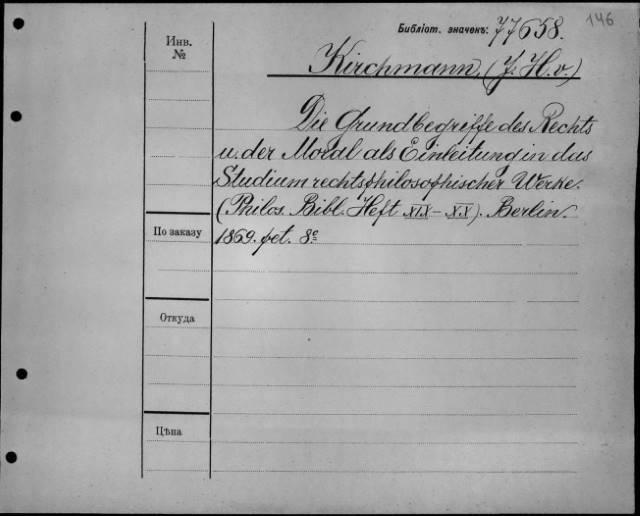 146
Библіот. значекъ: 77658.
Инв.
№
Kirchmann, (J. H. v.)
Die Grundbegriffe des Rechts
u. der Moral als Einleitung in das
Studium rechtsphilosophischer Werke.
(Philos. Bibl. Heft XIX–XX). Berlin.
По заказу
1869. pet. 8º
Откуда
Цѣна